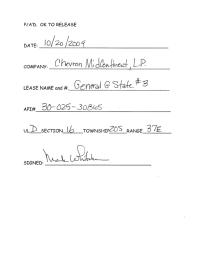 P/A'D. OK TO RELEASE
DATE: 10/20/2009
COMPANY: Chevron Midcontinent, L.P.
LEASE NAME and #. General G State #3
API# 30-025-30865
UL D SECTION 16 TOWNSHIP 20S RANGE 37E
SIGNED: Mark Whitaker